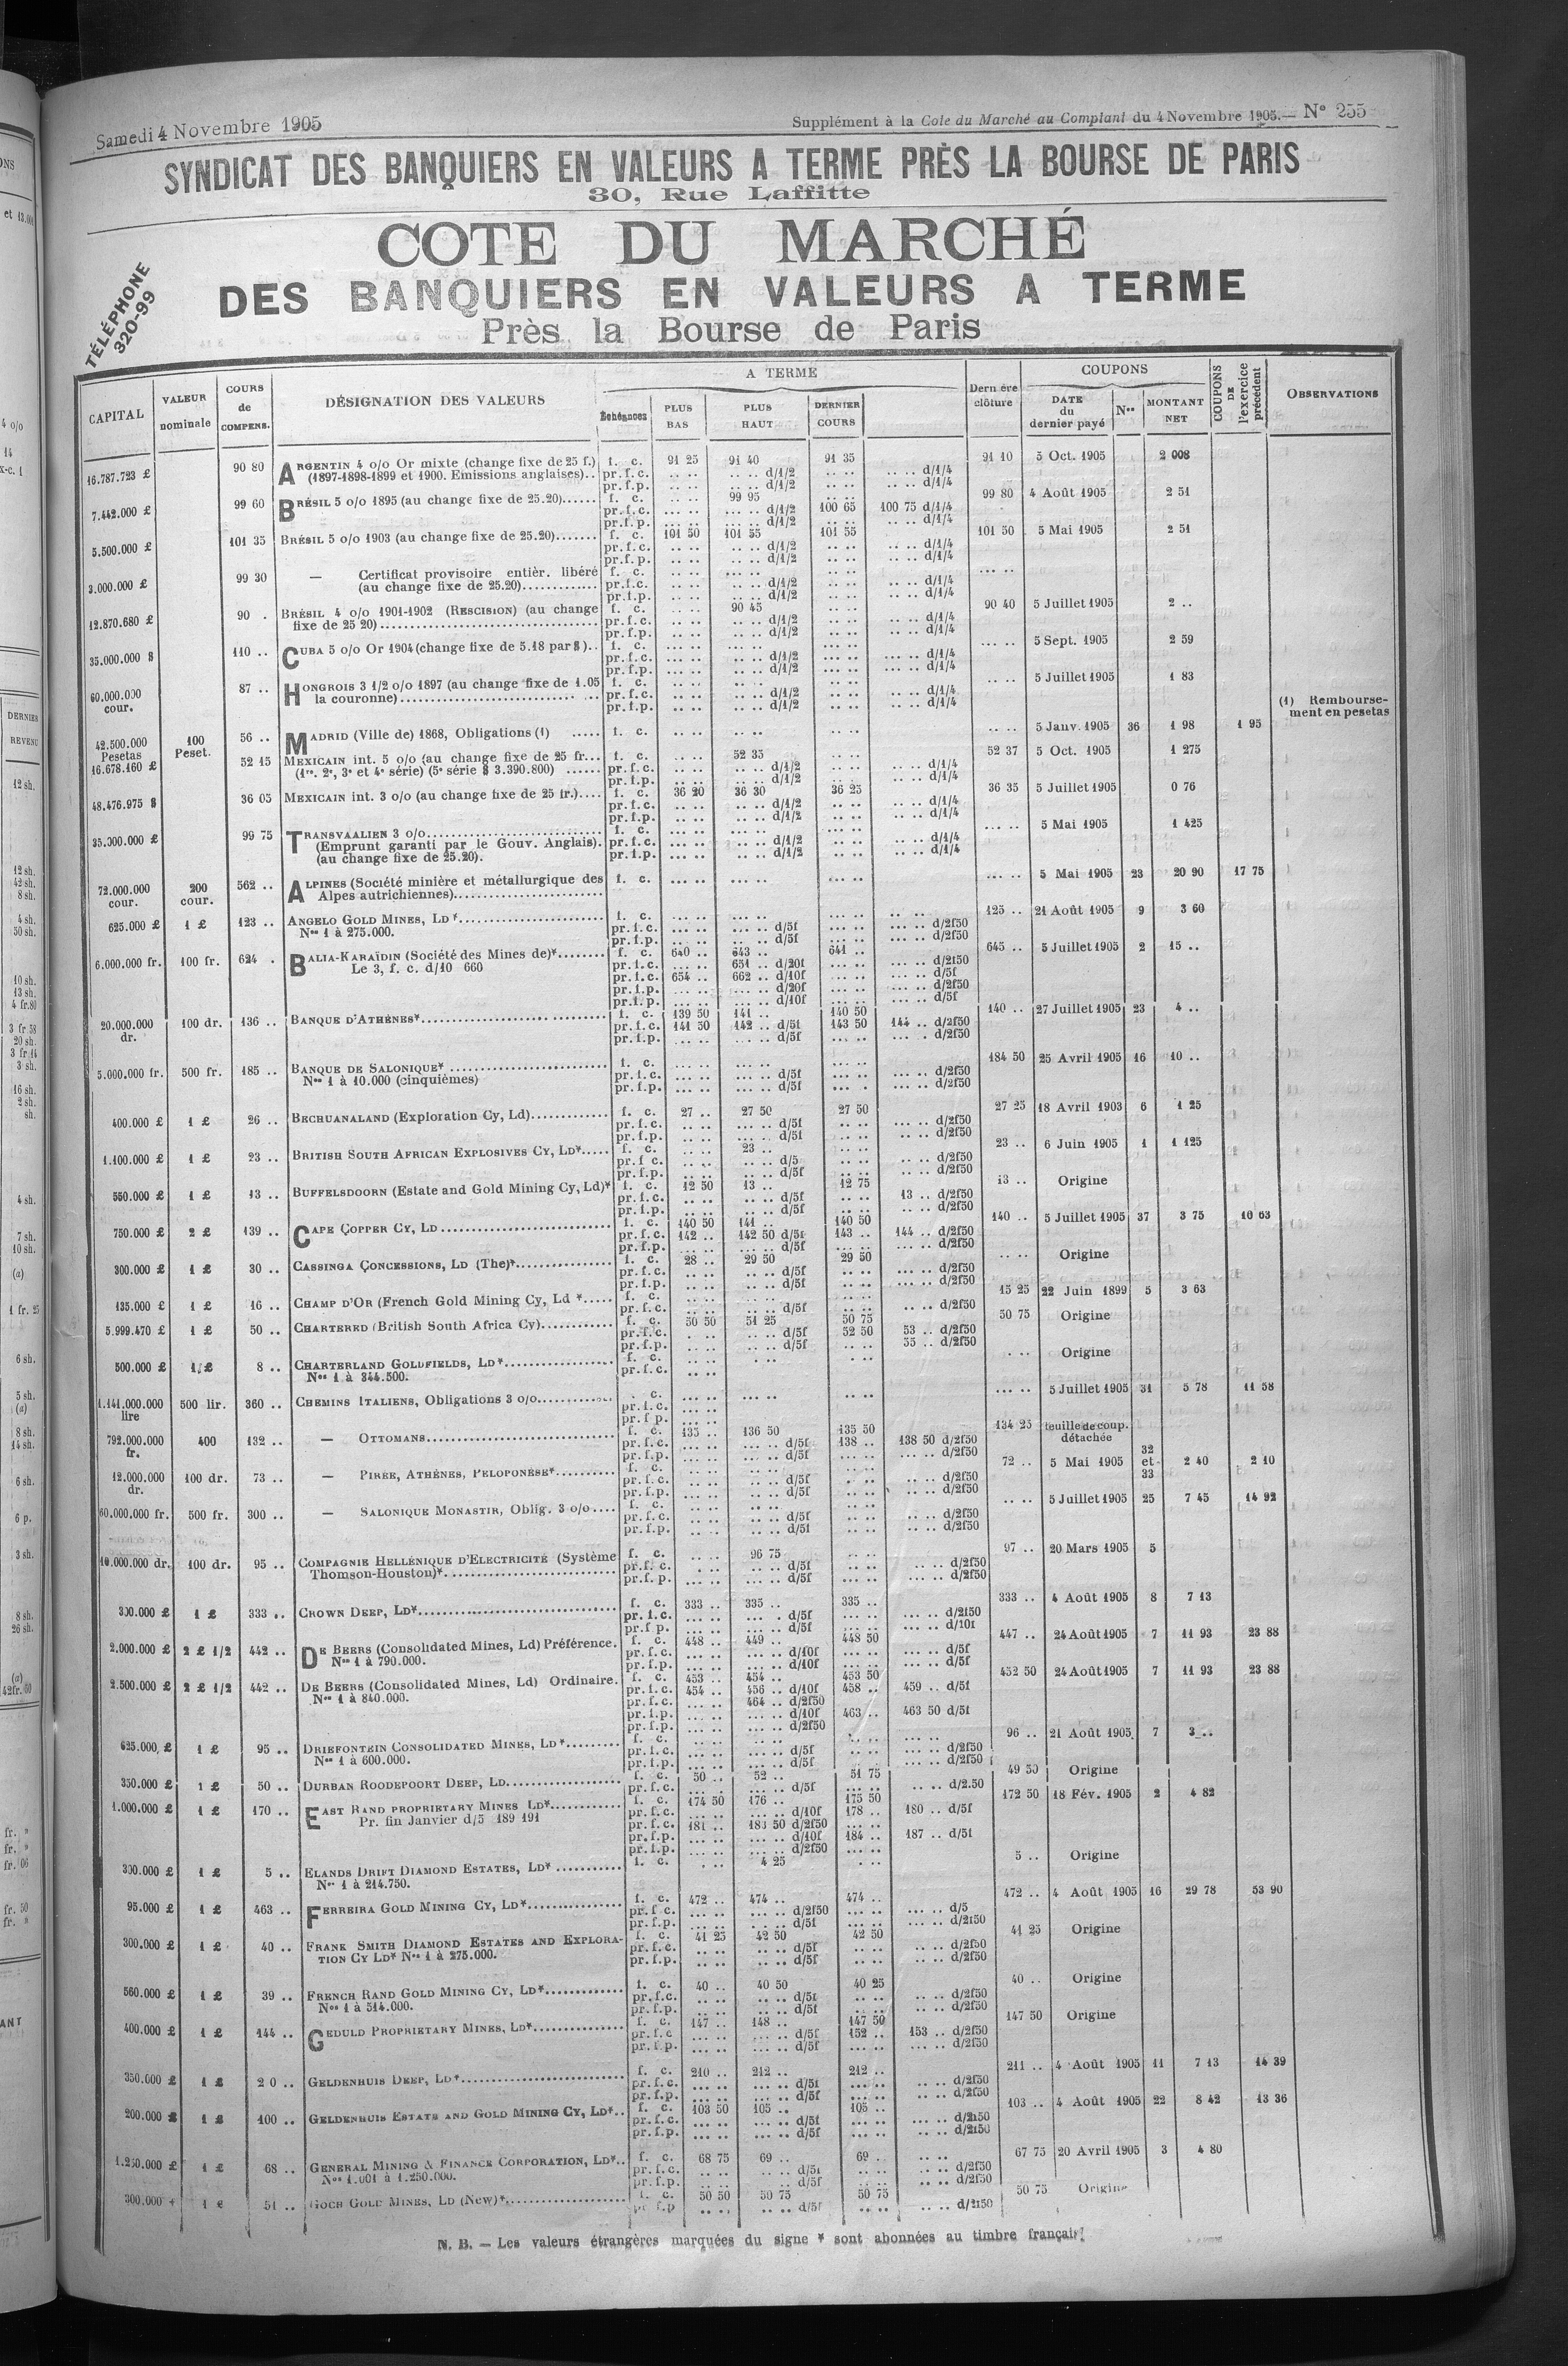 Samedi 4 Novembre 1905
Supplément à la Cote du Marché au Comptant du 4 Novembre 1905.— N° 255
SYNDICAT DES BANQUIERS EN VALEURS A TERME PRÈS LA BOURSE DE PARIS
30, Rue Laffitte
COTE DU MARCHÉ
DES BANQUIERS EN VALEURS A TERME
Près la Bourse de Paris
TÉLÉPHONE
320-99
CAPITAL
VALEUR nominale
COURS de COMPENS.
DÉSIGNATION DES VALEURS
A TERME
Échéances
PLUS BAS
PLUS HAUT
DERNIER COURS
Dern ère clôture
COUPONS
DATE du dernier payé
Nos
MONTANT NET
COUPONS DE l'exercice précédent
OBSERVATIONS
16.787.723 £ 90 80 ARGENTIN 4 o/o Or mixte (change fixe de 25 f.) f. c. 91 25 91 40 91 35 91 10 5 Oct. 1905 2 008
(1897-1898-1899 et 1900. Emissions anglaises).. pr.f.c. d/1/2 d/1/4
pr.f.p. d/1/2 d/1/4
7.442.000 £ 99 60 BRÉSIL 5 o/o 1895 (au change fixe de 25.20)...... f. c. 99 95 99 80 4 Août 1905 2 51
pr.f.c. d/1/2 100 65 100 75 d/1/4
pr.f.p. d/1/2 d/1/4
5.500.000 £ 101 35 BRÉSIL 5 o/o 1903 (au change fixe de 25.20)....... f. c. 101 50 101 55 101 55 101 50 5 Mai 1905 2 51
pr.f.c. d/1/2 d/1/4
pr.f.p. d/1/2 d/1/4
3.000.000 £ 99 30 — Certificat provisoire entièr. libéré f. c.
(au change fixe de 25.20)............. pr.f.c. d/1/2 d/1/4
pr.f.p. d/1/2 d/1/4
12.870.680 £ 90 . BRÉSIL 4 o/o 1901-1902 (RESCISION) (au change f. c. 90 45 90 40 5 Juillet 1905 2 ..
fixe de 25 20) pr.f.c. d/1/2 d/1/4
pr.f.p. d/1/2 d/1/4
35.000.000 $ 110 .. CUBA 5 o/o Or 1904 (change fixe de 5.18 par $).. f. c. 5 Sept. 1905 2 59
pr.f.c. d/1/2 d/1/4
pr.f.p. d/1/2 d/1/4
60.000.000 cour. 87 .. HONGROIS 3 1/2 o/o 1897 (au change fixe de 1.05 f. c. 5 Juillet 1905 1 83
la couronne) pr.f.c. d/1/2 d/1/4
pr.f.p. d/1/2 d/1/4
(1) Rembourse-
ment en pesetas
42.500.000 Pesetas 100 Peset. 56 .. MADRID (Ville de) 1868, Obligations (1) ..... f. c. 5 Janv. 1905 36 1 98 1 95
16.678.160 £ 52 15 MEXICAIN int. 5 o/o (au change fixe de 25 fr... f. c. 52 35 52 37 5 Oct. 1905 1 275
(1re. 2e, 3e et 4e série) (5e série $ 3.390.800) ...... pr.f.c. d/1/2 d/1/4
pr.f.p. d/1/2 d/1/4
48.476.975 $ 36 05 MEXICAIN int. 3 o/o (au change fixe de 25 fr.).... f. c. 36 20 36 30 36 25 36 35 5 Juillet 1905 0 76
pr.f.c. d/1/2 d/1/4
pr.f.p. d/1/2 d/1/4
35.000.000 £ 99 75 TRANSVAALIEN 3 o/o f. c. 5 Mai 1905 1 425
(Emprunt garanti par le Gouv. Anglais). pr.f.c. d/1/2 d/1/4
(au change fixe de 25.20). pr.f.p. d/1/2 d/1/4
72.000.000 cour. 200 cour. 562 .. ALPINES (Société minière et métallurgique des f. c. 5 Mai 1905 23 20 90 17 75
Alpes autrichiennes)
625.000 £ 1 £ 123 .. ANGELO GOLD MINES, LD* f. c. 125 .. 21 Août 1905 9 3 60
Nos 1 à 275.000. pr.f.c. d/5f d/2f50
pr.f.p. d/5f d/2f50
6.000.000 fr. 100 fr. 624 . BALIA-KARAÏDIN (Société des Mines de)* f. c. 640 .. 643 .. 641 .. 645 .. 5 Juillet 1905 2 15 ..
Le 3, f. c. d/10 660 pr.f.c. 651 .. d/20f d/2f50
pr.f.c. 654 .. 662 .. d/10f d/5f
pr.f.p. d/20f d/2f50
pr.f.p. d/10f d/5f
20.000.000 dr. 100 dr. 136 .. BANQUE D'ATHÈNES* f. c. 139 50 141 .. 140 50 140 .. 27 Juillet 1905 23 4 ..
pr.f.c. 141 50 142 .. d/5f 143 50 144 .. d/2f50
pr.f.p. d/5f d/2f50
5.000.000 fr. 500 fr. 185 .. BANQUE DE SALONIQUE* f. c. 184 50 25 Avril 1905 16 10 ..
Nos 1 à 10.000 (cinquièmes) pr.f.c. d/5f d/2f50
pr.f.p. d/5f d/2f50
400.000 £ 1 £ 26 .. BECHUANALAND (Exploration Cy, Ld) f. c. 27 .. 27 50 27 50 27 25 18 Avril 1903 6 1 25
pr.f.c. d/5f d/2f50
pr.f.p. d/5f d/2f50
1.100.000 £ 1 £ 23 .. BRITISH SOUTH AFRICAN EXPLOSIVES CY, LD* f. c. 23 .. 23 .. 6 Juin 1905 1 1 125
pr.f.c. d/5 d/2f50
pr.f.p. d/5f d/2f50
550.000 £ 1 £ 13 .. BUFFELSDOORN (Estate and Gold Mining Cy, Ld)* f. c. 12 50 13 .. 12 75 13 .. Origine
pr.f.c. d/5f 13 .. d/2f50
pr.f.p. d/5f d/2f50
750.000 £ 2 £ 139 .. CAPE COPPER CY, LD f. c. 140 50 141 .. 140 50 140 .. 5 Juillet 1905 37 3 75 10 63
pr.f.c. 142 .. 142 50 d/5f 143 .. 144 .. d/2f50
pr.f.p. d/5f d/2f50
300.000 £ 1 £ 30 .. CASSINGA CONCESSIONS, LD (The)* f. c. 28 .. 29 50 29 50 Origine
pr.f.c. d/5f d/2f50
pr.f.p. d/5f d/2f50
135.000 £ 1 £ 16 .. CHAMP D'OR (French Gold Mining Cy, Ld * f. c. 15 25 22 Juin 1899 5 3 63
pr.f.c. d/5f d/2f50
5.999.470 £ 1 £ 50 .. CHARTERED (British South Africa Cy) f. c. 50 50 51 25 50 75 50 75 Origine
pr.f.c. d/5f 52 50 53 .. d/2f50
pr.f.p. d/5f 55 .. d/2f50
500.000 £ 1 £ 8 .. CHARTERLAND GOLDFIELDS, LD* f. c. Origine
Nos 1 à 344.500. pr.f.c.
1.141.000.000 lire 500 lir. 360 .. CHEMINS ITALIENS, Obligations 3 o/o f. c. 5 Juillet 1905 31 5 78 11 58
pr.f.c.
pr.f.p.
792.000.000 fr. 400 132 .. — OTTOMANS f. c. 135 .. 136 50 135 50 134 25 feuille de coup. détachée
pr.f.c. d/5f 138 .. 138 50 d/2f50
pr.f.p. d/5f d/2f50
12.000.000 dr. 100 dr. 73 .. — PIRÉE, ATHÈNES, PÉLOPONÈSE* f. c. 72 .. 5 Mai 1905 32 et 33 2 40 2 10
pr.f.c. d/5f d/2f50
pr.f.p. d/5f d/2f50
60.000.000 fr. 500 fr. 300 .. — SALONIQUE MONASTIR, Oblig. 3 o/o f. c. 5 Juillet 1905 25 7 45 14 92
pr.f.c. d/5f d/2f50
pr.f.p. d/5f d/2f50
10.000.000 dr. 100 dr. 95 .. COMPAGNIE HELLÉNIQUE D'ELECTRICITÉ (Système f. c. 96 75 97 .. 20 Mars 1905 5
Thomson-Houston)* pr.f.c. d/5f d/2f50
pr.f.p. d/5f d/2f50
300.000 £ 1 £ 333 .. CROWN DEEP, LD* f. c. 333 .. 335 .. 335 .. 333 .. 4 Août 1905 8 7 13
pr.f.c. d/5f d/2f50
pr.f.p. d/5f d/10f
2.000.000 £ 2 £ 1/2 442 .. DE BEERS (Consolidated Mines, Ld) Préférence. f. c. 448 .. 449 .. 448 50 447 .. 24 Août 1905 7 11 93 23 88
Nos 1 à 790.000. pr.f.c. d/10f d/5f
pr.f.p. d/10f d/5f
2.500.000 £ 2 £ 1/2 442 .. DE BEERS (Consolidated Mines, Ld) Ordinaire. f. c. 453 .. 454 .. 453 50 452 50 24 Août 1905 7 11 93 23 88
Nos 1 à 840.000. pr.f.c. 454 .. 456 .. d/10f 458 .. 459 .. d/5f
pr.f.c. 464 .. d/2f50
pr.f.p. d/10f 463 .. 463 50 d/5f
pr.f.p. d/2f50
625.000 £ 1 £ 95 .. DRIEFONTEIN CONSOLIDATED MINES, LD* f. c. 96 .. 21 Août 1905 7 3 ..
Nos 1 à 600.000. pr.f.c. d/5f d/2f50
pr.f.p. d/5f d/2f50
350.000 £ 1 £ 50 .. DURBAN ROODEPOORT DEEP, LD f. c. 50 .. 52 .. 51 75 49 50 Origine
pr.f.c. d/5f d/2.50
1.000.000 £ 1 £ 170 .. EAST RAND PROPRIETARY MINES LD* f. c. 174 50 176 .. 175 50 172 50 18 Fév. 1905 2 4 82
Pr. fin Janvier d/5 189 191 pr.f.c. d/10f 178 .. 180 .. d/5f
pr.f.c. 181 .. 183 50 d/2f50
pr.f.p. d/10f 184 .. 187 .. d/5f
pr.f.p. d/2f50
300.000 £ 1 £ 5 .. ELANDS DRIFT DIAMOND ESTATES, LD* f. c. 4 25 5 .. Origine
Nos 1 à 214.750.
95.000 £ 1 £ 463 .. FERREIRA GOLD MINING CY, LD* f. c. 472 .. 474 .. 474 .. 472 .. 4 Août 1905 16 29 78 53 90
pr.f.c. d/2f50 d/5
pr.f.p. d/5f d/2f50
300.000 £ 1 £ 40 .. FRANK SMITH DIAMOND ESTATES AND EXPLORA- f. c. 41 25 42 50 42 50 41 25 Origine
TION CY LD* Nos 1 à 275.000. pr.f.c. d/5f d/2f50
pr.f.p. d/5f d/2f50
560.000 £ 1 £ 39 .. FRENCH RAND GOLD MINING CY, LD* f. c. 40 .. 40 50 40 25 40 .. Origine
Nos 1 à 514.000. pr.f.c. d/5f d/2f50
pr.f.p. d/5f d/2f50
400.000 £ 1 £ 144 .. GEDULD PROPRIETARY MINES, LD* f. c. 147 .. 148 .. 147 50 147 50 Origine
pr.f.c d/5f 152 .. 153 .. d/2f50
pr.f.p. d/5f d/2f50
350.000 £ 1 £ 2 0 .. GELDENHUIS DEEP, LD* f. c. 210 .. 212 .. 212 .. 211 .. 4 Août 1905 11 7 13 14 39
pr.f.c. d/5f d/2f50
pr.f.p. d/5f d/2f50
200.000 £ 1 £ 100 .. GELDENHUIS ESTATE AND GOLD MINING CY, LD* f. c. 103 50 105 .. 105 .. 103 .. 4 Août 1905 22 8 42 13 36
pr.f.c. d/5f d/2f50
pr.f.p. d/5f d/2f50
1.250.000 £ 1 £ 68 .. GENERAL MINING & FINANCE CORPORATION, LD* f. c. 68 75 69 .. 69 .. 67 75 20 Avril 1905 3 4 80
Nos 1.001 à 1.250.000. pr.f.c. d/5f d/2f50
pr.f.p. d/5f d/2f50
300.000 51 .. GOCH GOLD MINES, LD (New)* f. c. 50 50 50 75 50 75 50 75 Origine
pr f.p d/5f d/2f50
N. B. — Les valeurs étrangères marquées du signe * sont abonnées au timbre français